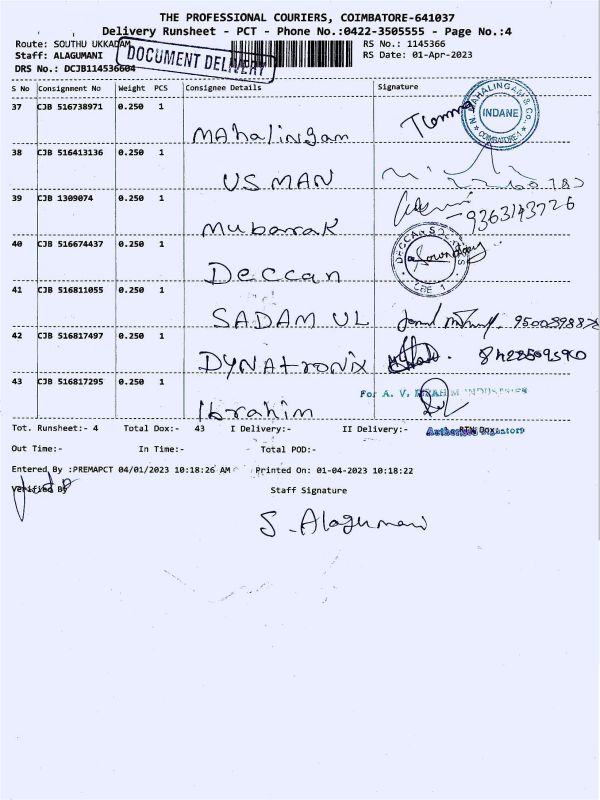 THE PROFESSIONAL COURIERS, COIMBATORE-641037
Delivery Runsheet - PCT - Phone No.:0422-3505555 - Page No.:4
Route: SOUTHU UKKADAM
RS No.: 1145366
Staff: ALAGUMANI
RS Date: 01-Apr-2023
DOCUMENT DELIVERY
DRS No.: DCJB114536604
S No Consignment No Weight PCS Consignee Details Signature
37 CJB 516738971 0.250 1
MAhalingam
MAHALINGAM & CO.,
INDANE
COIMBATORE-1
38 CJB 516413136 0.250 1
USMAN
39 CJB 1309074 0.250 1
Mubarak
9363143726
40 CJB 516674437 0.250 1
Deccan
CBE 1
41 CJB 516811055 0.250 1
SADAM UL
42 CJB 516817497 0.250 1
DYNAtronix
43 CJB 516817295 0.250 1
Ibrahim
For A. V. IBRAHIM INDUSTRIES
Tot. Runsheet:- 4 Total Dox:- 43 I Delivery:- II Delivery:- RTN Dox:
Authorised Signatory
Out Time:- In Time:- Total POD:-
Entered By :PREMAPCT 04/01/2023 10:18:26 AM Printed On: 01-04-2023 10:18:22
Verified By Staff Signature
S. Alagumani